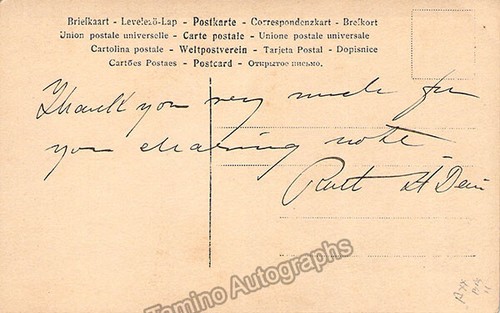 Briefkaart - Levelező-Lap - Postkarte - Correspondenzkart - Brefkort
Union postale universelle - Carte postale - Unione postale universale
Cartolina postale - Weltpostverein - Tarjeta Postal - Dopisnice
Cartões Postaes - Postcard - Открытое письмо.
Thank you very much for
your charming note
Ruth St Denis
Tamino Autographs